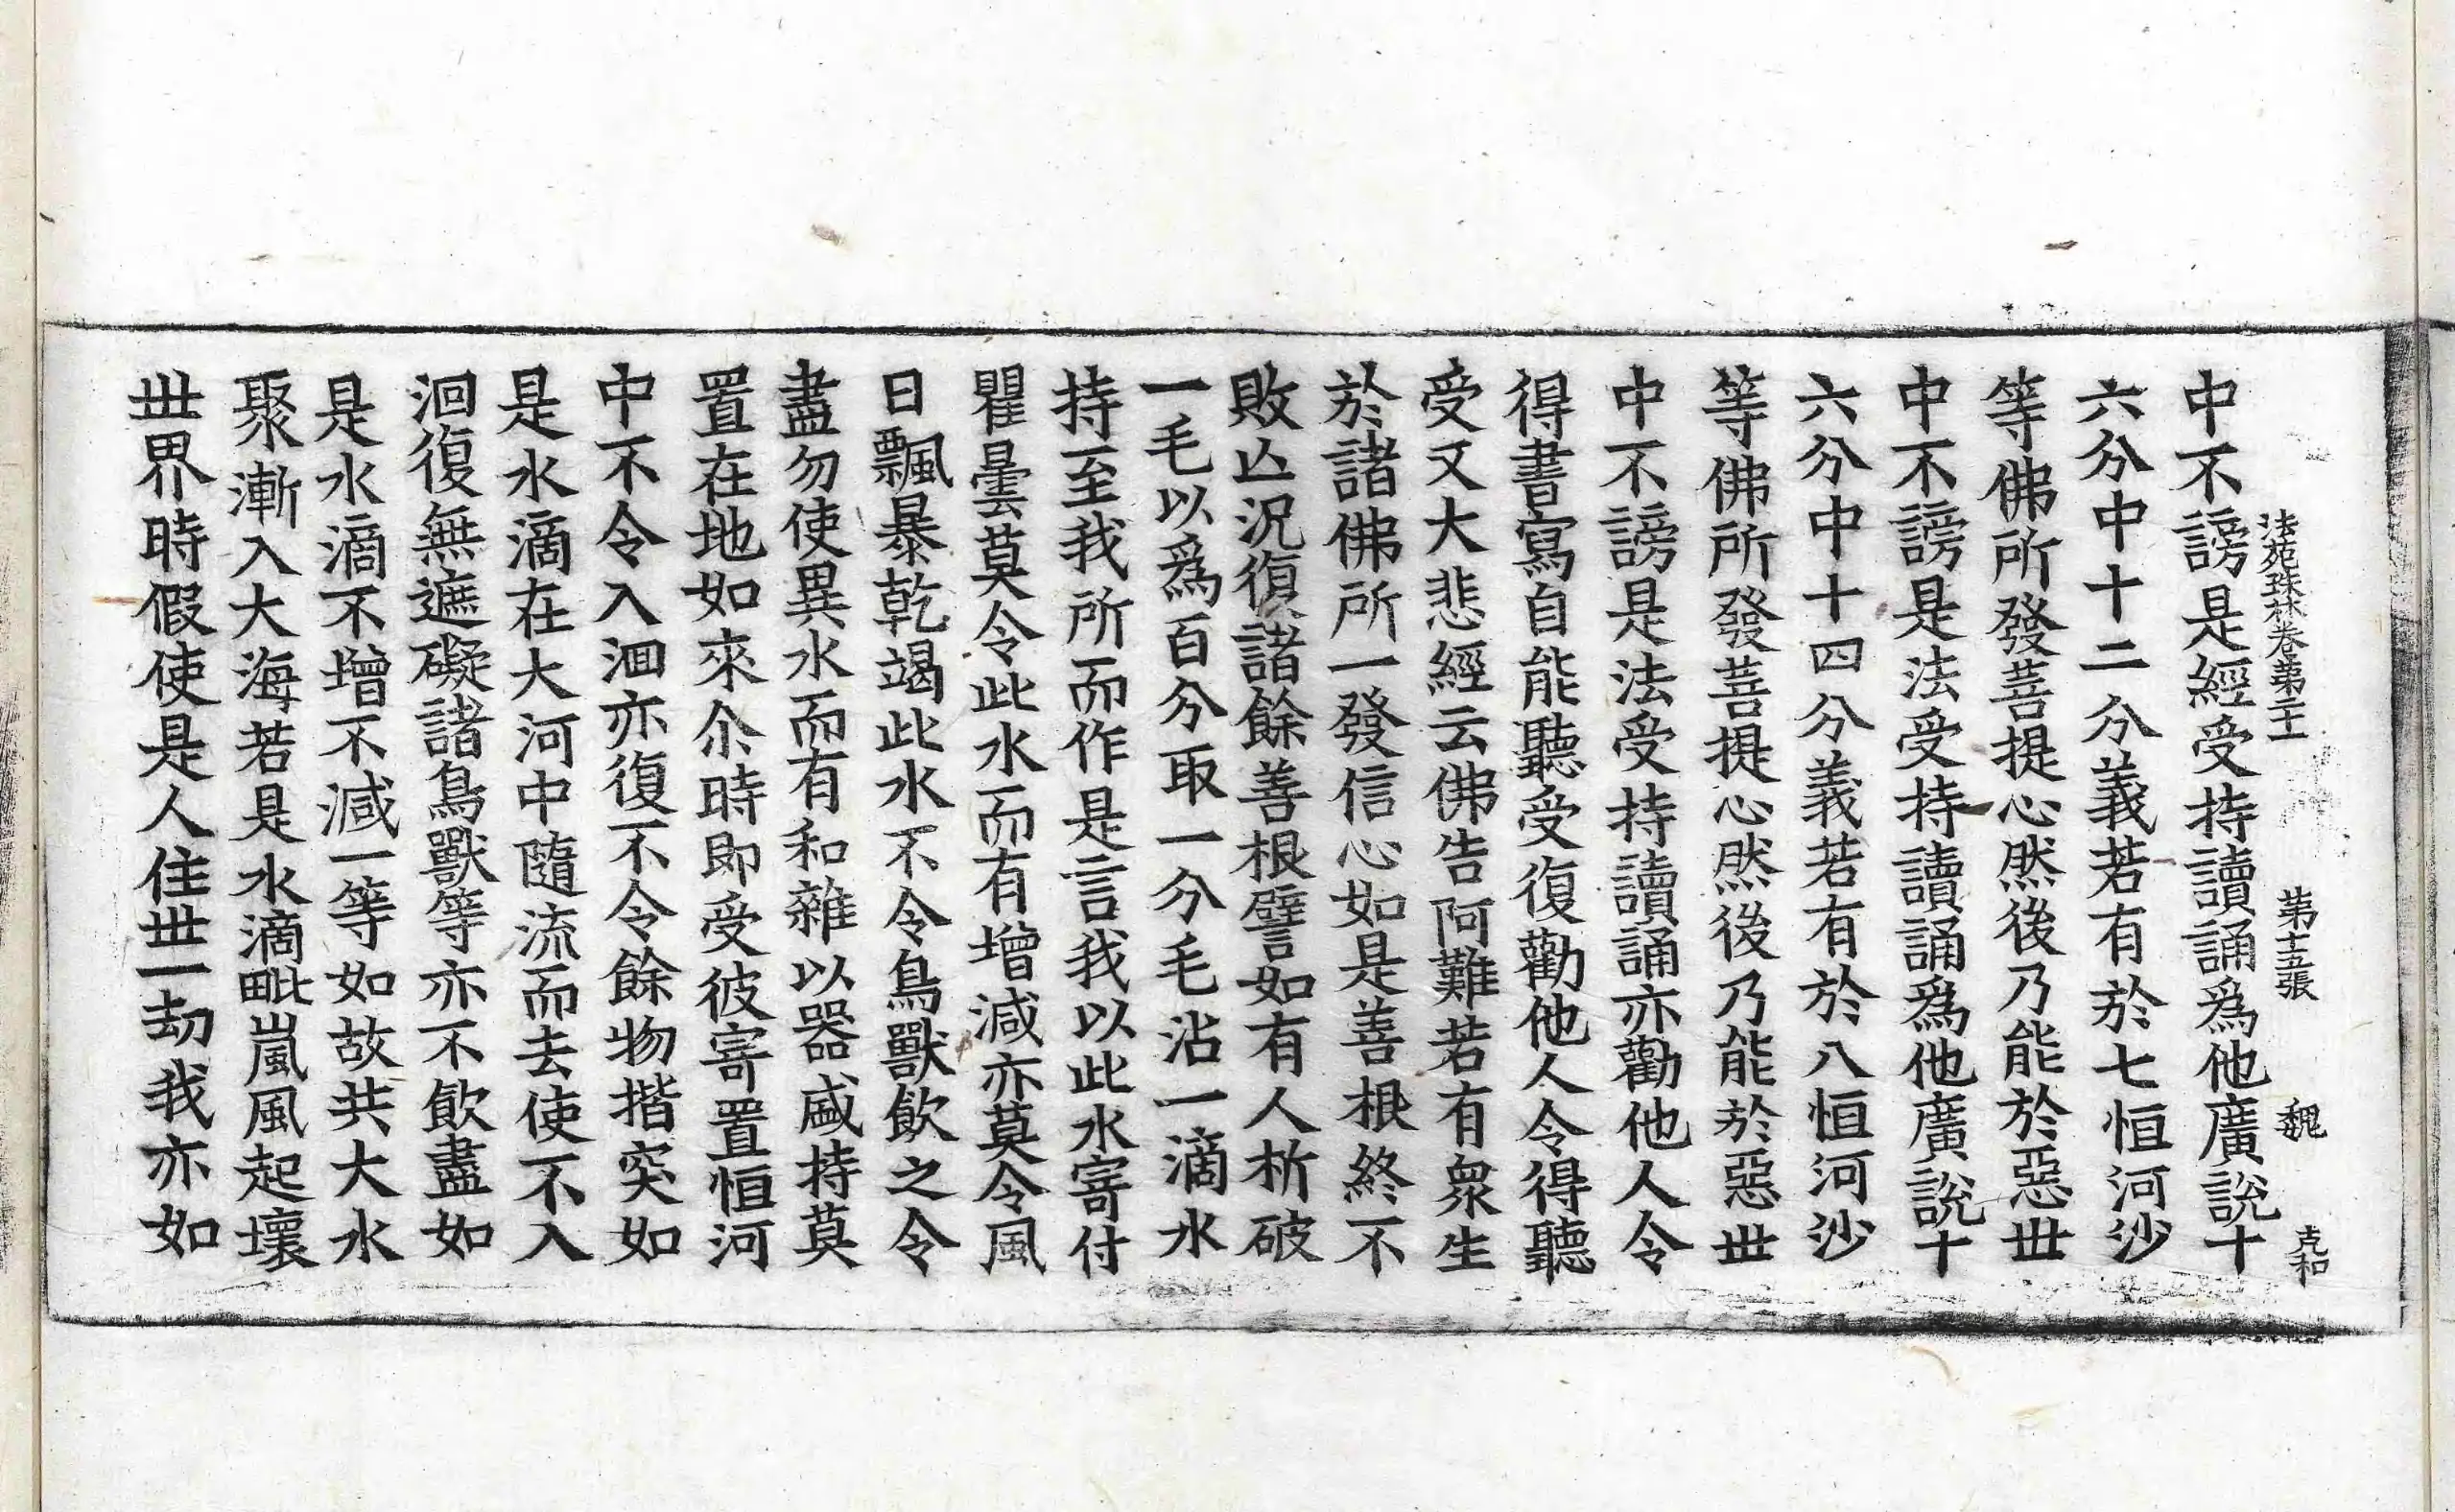 法苑珠林卷第二十 第十五張 魏 克和
中不謗是經受持讀誦爲他廣說十
六分中十二分義若有於七恒河沙
等佛所發菩提心然後乃能於惡世
中不謗是法受持讀誦爲他廣說十
六分中十四分義若有於八恒河沙
等佛所發菩提心然後乃能於惡世
中不謗是法受持讀誦亦勸他人令
得書寫自能聽受復勸他人令得聽
受又大悲經云佛告阿難若有衆生
於諸佛所一發信心如是善根終不
敗亾況復諸餘善根譬如有人析破
一毛以爲百分取一分毛沾一滴水
持至我所而作是言我以此水寄付
瞿曇莫令此水而有增減亦莫令風
日飄暴乾竭此水不令鳥獸飲之令
盡勿使異水而有和雜以器盛持莫
置在地如來尒時即受彼寄置恒河
中不令入洄亦復不令餘物揩突如
是水滴在大河中隨流而去使不入
洄復無遮礙諸鳥獸等亦不飲盡如
是水滴不增不減一等如故共大水
聚漸入大海若是水滴毗嵐風起壞
世界時假使是人住世一劫我亦如